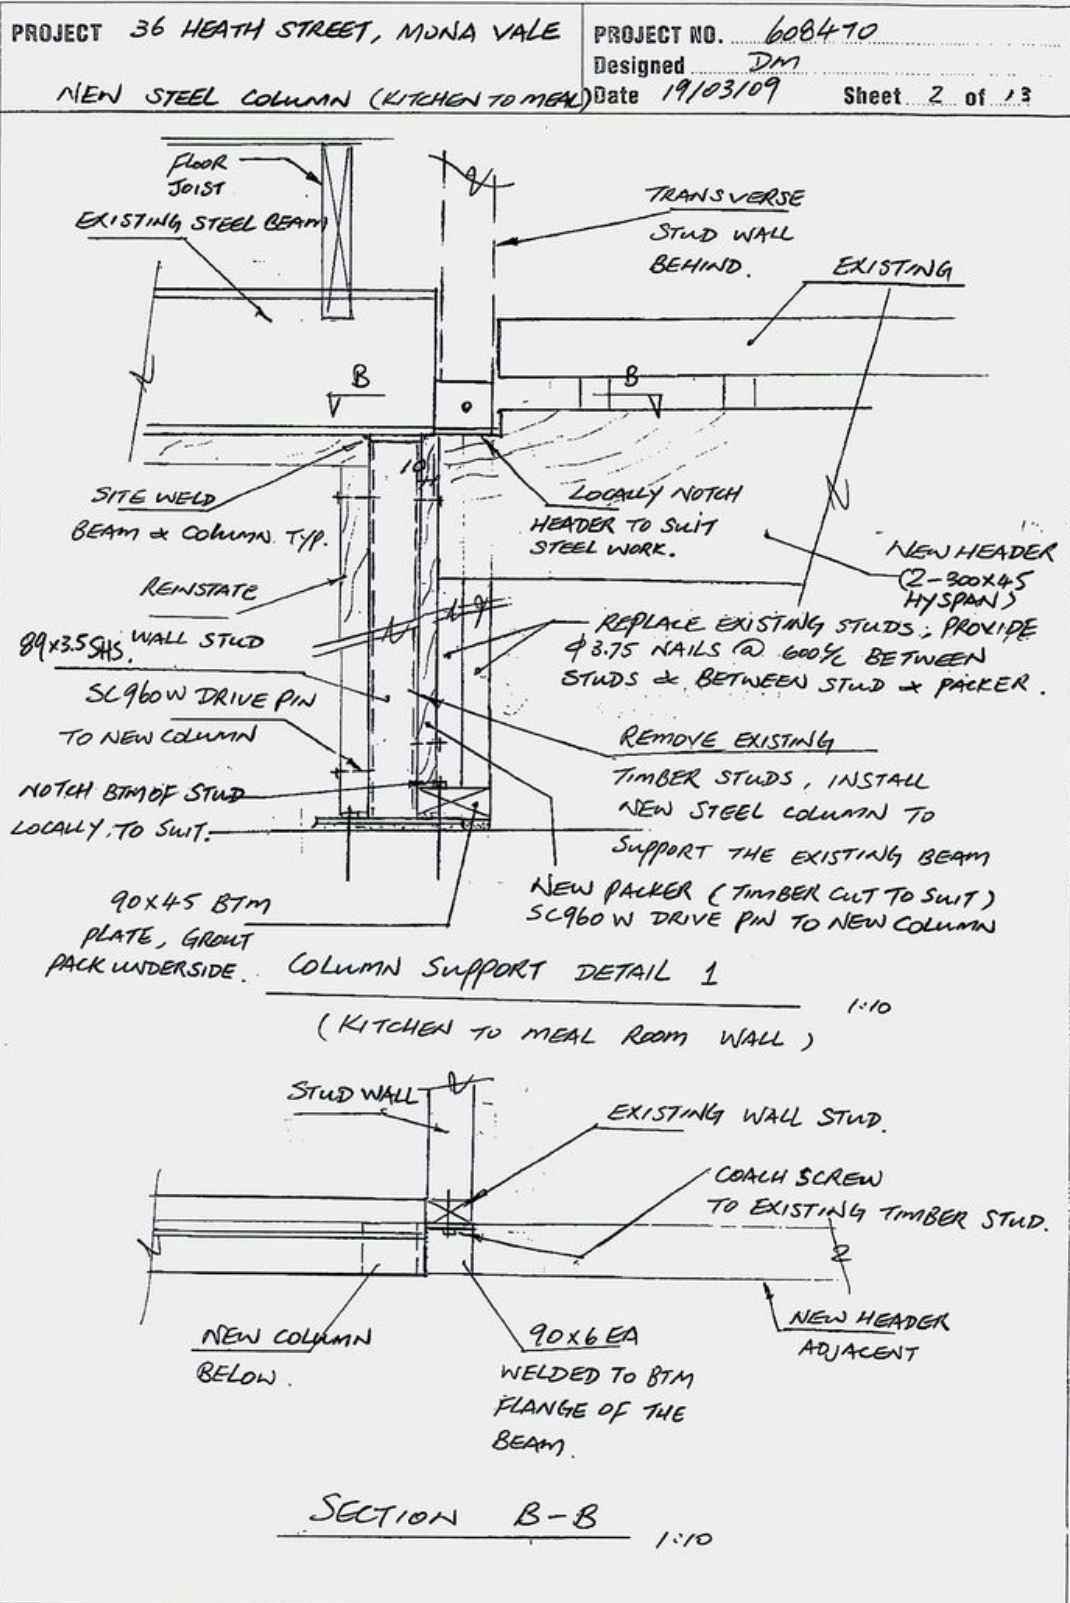 PROJECT 36 HEATH STREET, MONA VALE
NEW STEEL COLUMN (KITCHEN TO MEAL)
PROJECT NO. 608470
Designed DM
Date 19/03/09 Sheet 2 of 13
FLOOR
JOIST
EXISTING STEEL BEAM
TRANSVERSE
STUD WALL
BEHIND.
EXISTING
B
B
10
SITE WELD
BEAM & COLUMN TYP.
LOCALLY NOTCH
HEADER TO SUIT
STEEL WORK.
NEW HEADER
(2-300X45
HYSPAN)
REINSTATE
WALL STUD
89x3.5 SHS.
REPLACE EXISTING STUDS; PROVIDE
φ3.75 NAILS @ 600 c/c BETWEEN
STUDS & BETWEEN STUD & PACKER.
SC960W DRIVE PIN
TO NEW COLUMN
REMOVE EXISTING
TIMBER STUDS, INSTALL
NEW STEEL COLUMN TO
SUPPORT THE EXISTING BEAM
NOTCH BTM OF STUD
LOCALLY, TO SUIT.
NEW PACKER (TIMBER CUT TO SUIT)
SC960W DRIVE PIN TO NEW COLUMN
90X45 BTM
PLATE, GROUT
PACK UNDERSIDE.
COLUMN SUPPORT DETAIL 1
1:10
(KITCHEN TO MEAL ROOM WALL)
STUD WALL
EXISTING WALL STUD.
COACH SCREW
TO EXISTING TIMBER STUD.
NEW COLUMN
BELOW.
90X6 EA
WELDED TO BTM
FLANGE OF THE
BEAM.
NEW HEADER
ADJACENT
SECTION B-B
1:10